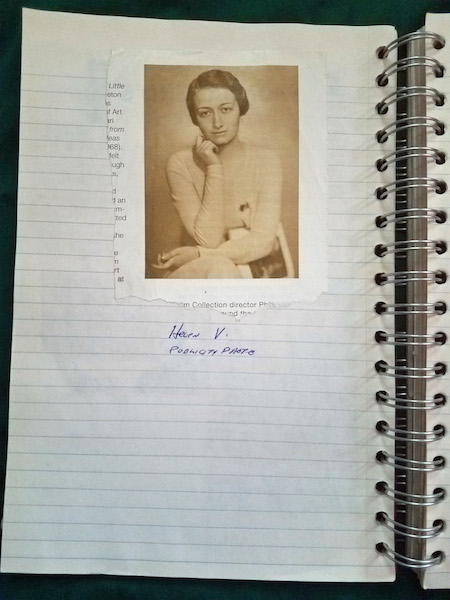 Little
eton
s
f Art
ari
from
deas
968).
felt
ough
s,
d
d an
m-
ted
he
e
m
rt
at
um Collection director Phil
und the
Helen V.
Publicity Photo